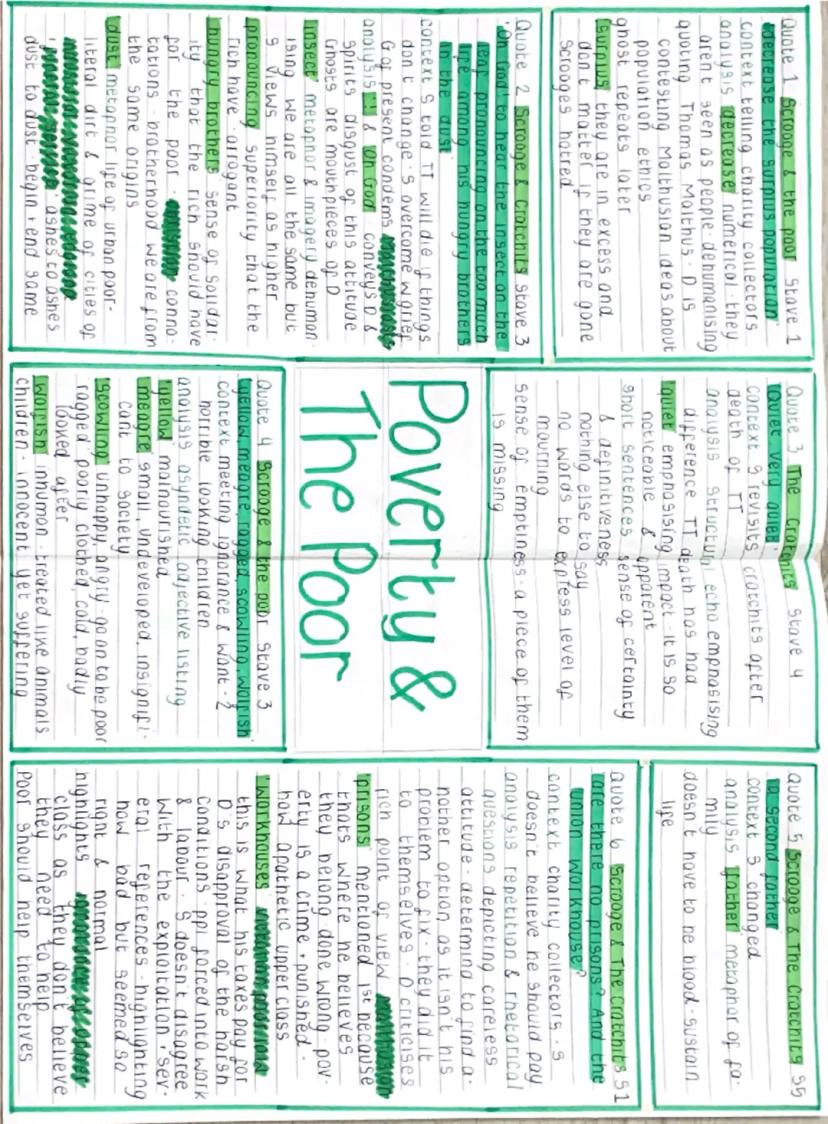 Quote 1 Scrooge & the poor Stave 1
'decrease the surplus population'
context telling charity collectors
analysis decrease numerical · they
arent seen as people · dehumanising
quoting Thomas Malthus · D is
contesting Malthusian ideas about
population ethics
ghost repeats later
surplus they are in excess and
don't matter if they are gone
scrooges hatred
Quote 2 Scrooge & Cratchits Stave 3
'Oh God to hear the insect on the
leaf pronouncing on the too much
life among his hungry brothers
in the dust'
context S told TT will die if things
don't change · S overcome w grief
G of present condemns
analysis '!' & 'Oh God' · conveys D &
spirits disgust of this attitude
Ghosts are mouthpieces of D
insect metaphor & imagery dehuman·
ising we are all the same but
S views himself as higher
pronouncing superiority that the
rich have · arrogant
hungry brothers sense of solidar·
ity that the rich should have
for the poor · conno·
tations · brotherhood we are from
the same origins
dust metaphor life of urban poor·
literal dirt & grime of cities of
· 'ashes to ashes
dust to dust' · begin + end same
Quote 3 The Cratchits Stave 4
'Quiet very quiet'
context S revisits cratchits after
death of TT
analysis structure echo emphasising
difference TT death has had
'quiet' emphasising impact · it is so
noticeable & apparent
short sentences sense of certainty
& definitiveness
nothing else to say
no words to express level of
mourning
sense of emptiness · a piece of them
is missing
Poverty &
The Poor
Quote 4 Scrooge & the poor Stave 3
'Yellow, meagre, ragged, scowling, wolfish'
context meeting ignorance & want · 2
horrible looking children
analysis asyndetic adjective listing
yellow malnourished
meagre small, undeveloped, insignifi·
cant to society
ragged poorly clothed, cold, badly
looked after
scowling unhappy, angry · go on to be poor
wolfish inhuman · treated like animals
children · innocent yet suffering
Quote 5 Scrooge & The Cratchits S5
'a second father'
context S changed
analysis father metaphor of fa·
mily
doesn't have to be blood · sustain
life
Quote 6 Scrooge & The Cratchits S1
'are there no prisons? And the
union workhouse?'
context charity collectors · S
doesn't believe he should pay
analysis repetition & rhetorical
questions depicting careless
attitude · determing to find a·
nother option as it isn't his
problem to fix · they did it
to themselves · D criticises
rich point of view
'prisons' mentioned 1st because
thats where he believes
they belong done wrong · pov·
erty is a crime + punished ·
how apathetic upper class
'workhouses'
this is what his taxes pay for
D's disapproval of the harsh
conditions · ppl forced into work
& labour · S doesn't disagree
with the exploitation + sev·
eral references · highlighting
how bad but seemed so
right & normal
highlights
class as they don't believe
they need to help
Poor should help themselves